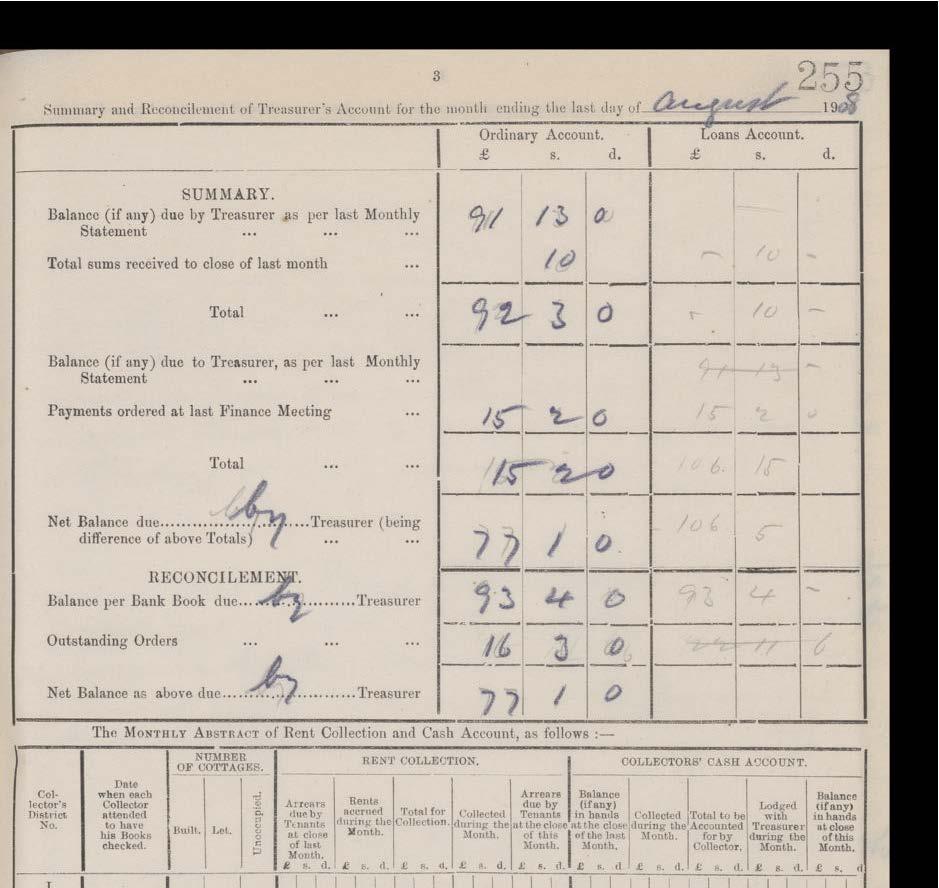 3
255
Summary and Reconcilement of Treasurer's Account for the month ending the last day of August 1908
Ordinary Account. Loans Account.
£ s. d. £ s. d.
SUMMARY.
Balance (if any) due by Treasurer as per last Monthly
Statement ... ... ... 91 13 0
Total sums received to close of last month ... 10 - 10 -
Total ... ... 92 3 0 - 10 -
Balance (if any) due to Treasurer, as per last Monthly
Statement ... ... ... 91 13 -
Payments ordered at last Finance Meeting ... 15 2 0 15 2 0
Total ... ... 15 2 0 106. 15
Net Balance due by Treasurer (being
difference of above Totals) ... ... 77 1 0 106 5
RECONCILEMENT.
Balance per Bank Book due by Treasurer 93 4 0 93 4 -
Outstanding Orders ... ... ... 16 3 0 22 11 6
Net Balance as above due by Treasurer 77 1 0
The MONTHLY ABSTRACT of Rent Collection and Cash Account, as follows :—
NUMBER OF COTTAGES. RENT COLLECTION. COLLECTORS' CASH ACCOUNT.
Collector's District No.
Date when each Collector attended to have his Books checked.
Built.
Let.
Unoccupied.
Arrears due by Tenants at close of last Month.
Rents accrued during the Month.
Total for Collection.
Collected during the Month.
Arrears due by Tenants at the close of this Month.
Balance (if any) in hands at the close of the last Month.
Collected during the Month.
Total to be Accounted for by Collector.
Lodged with Treasurer during the Month.
Balance (if any) in hands at close of this Month.
£ s. d. £ s. d. £ s. d. £ s. d. £ s. d. £ s. d. £ s. d. £ s. d. £ s. d. £ s. d